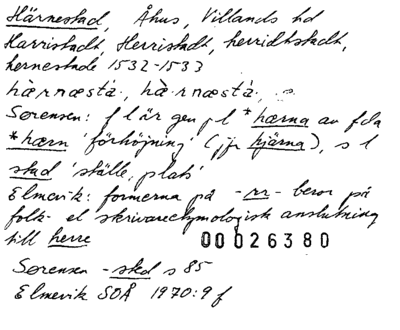 Härnestad, Åhus, Villands hd
Harristadt, Herristadt, herridhstadt,
hernestade 1532-1533
hæ̀rnæstá·, hà·rnæstá·, s.
Sørensen: f l är gen pl *hærna av fda
*hærn 'förhöjning' (jfr hjärna), s l
stad 'ställe, plats'
Elmevik: formerna på -rr- beror på
folk- el skrivaretymologisk anslutning
till herre 00026380
Sørensen -sted s 85
Elmevik SOÅ 1970:9 f